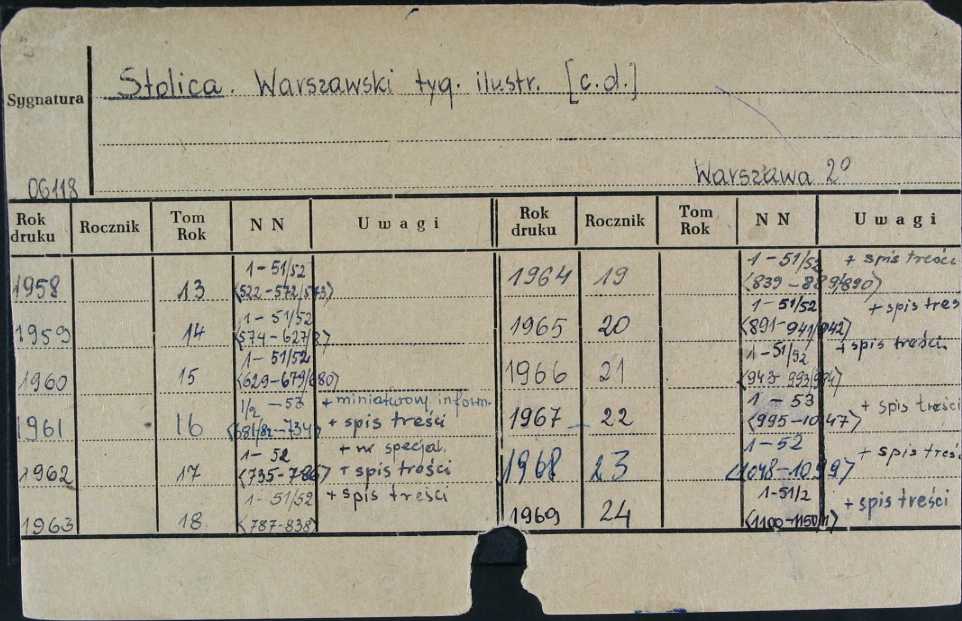 Stolica. Warszawski tyg. ilustr. [c.d.]
Sygnatura
Warszawa 2⁰
06118
Rok druku Rocznik Tom Rok N N Uwagi Rok druku Rocznik Tom Rok N N Uwagi
1958 13 1-51/52 <522-572/573>
1959 14 1-51/52 <574-627/8>
1960 15 1-51/52 <629-679/680>
1961 16 1/2 -53 <681/82-734> + miniaturowy inform. + spis treści
1962 17 1-52 <735-786> + nr specjal. + spis treści
1963 18 1-51/52 <787-838> + spis treści
1964 19 1-51/52 <839-889/890> + spis treści
1965 20 1-51/52 <891-941/942> + spis treś
1966 21 1-51/52 <943-993/994> + spis treści
1967 22 1-53 <995-1047> + spis treści
1968 23 1-52 <1048-1099> + spis treśc
1969 24 1-51/2 <1100-1150/1> + spis treści